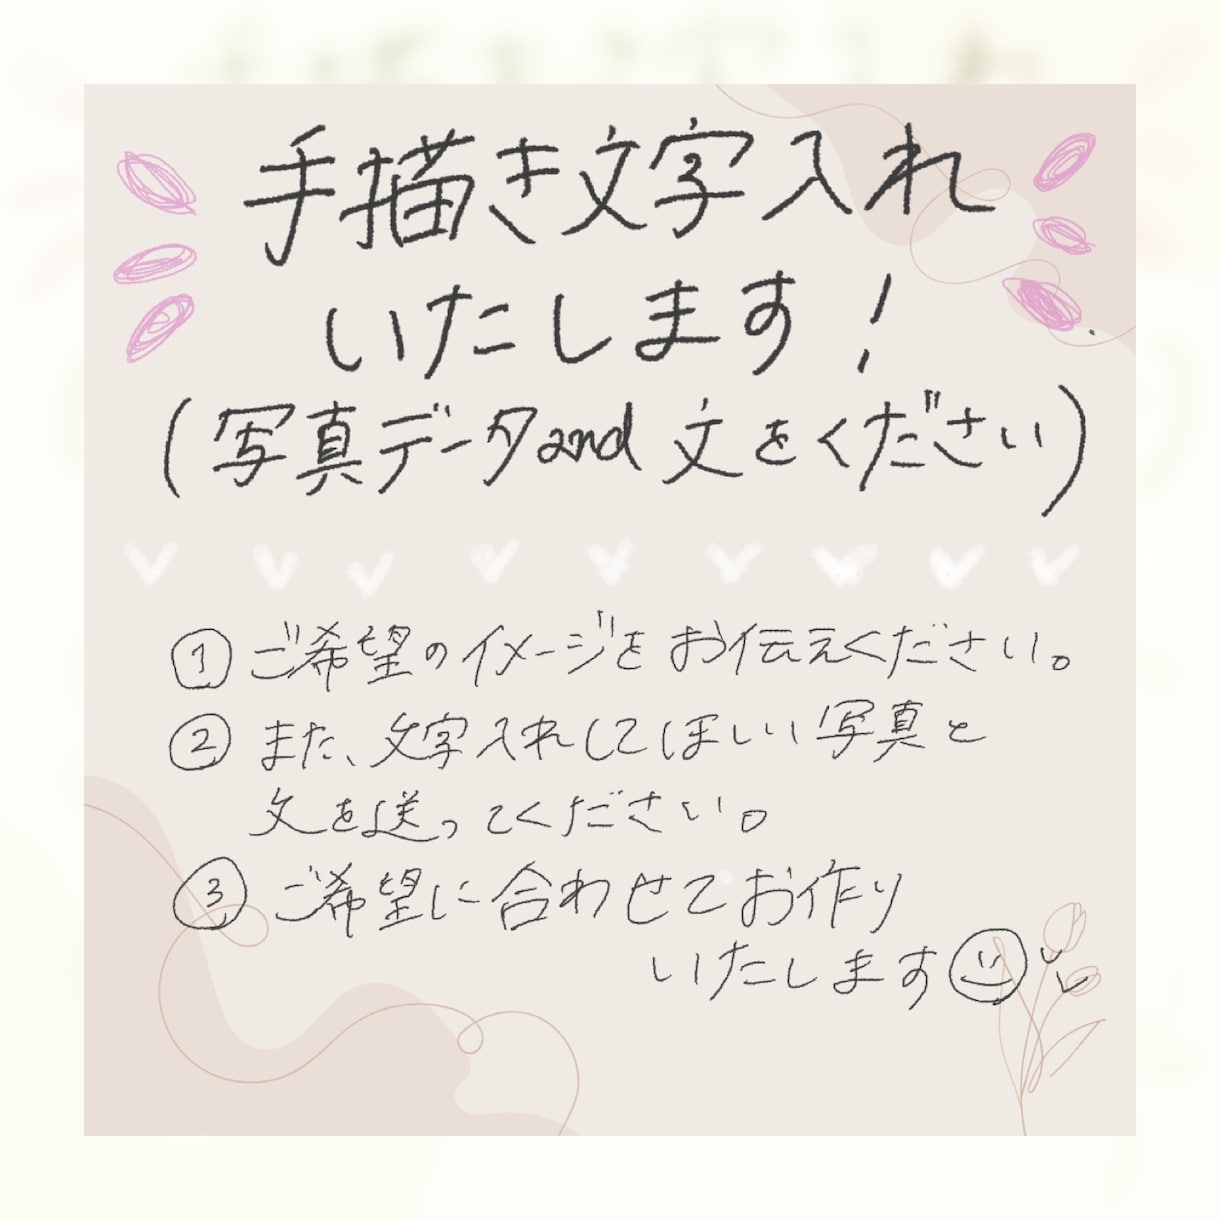 手描き文字入れ
いたします!
(写真データand文をください)
① ご希望のイメージをお伝えください。
② また、文字入れしてほしい写真と
文を送ってください。
③ ご希望に合わせてお作り
いたします